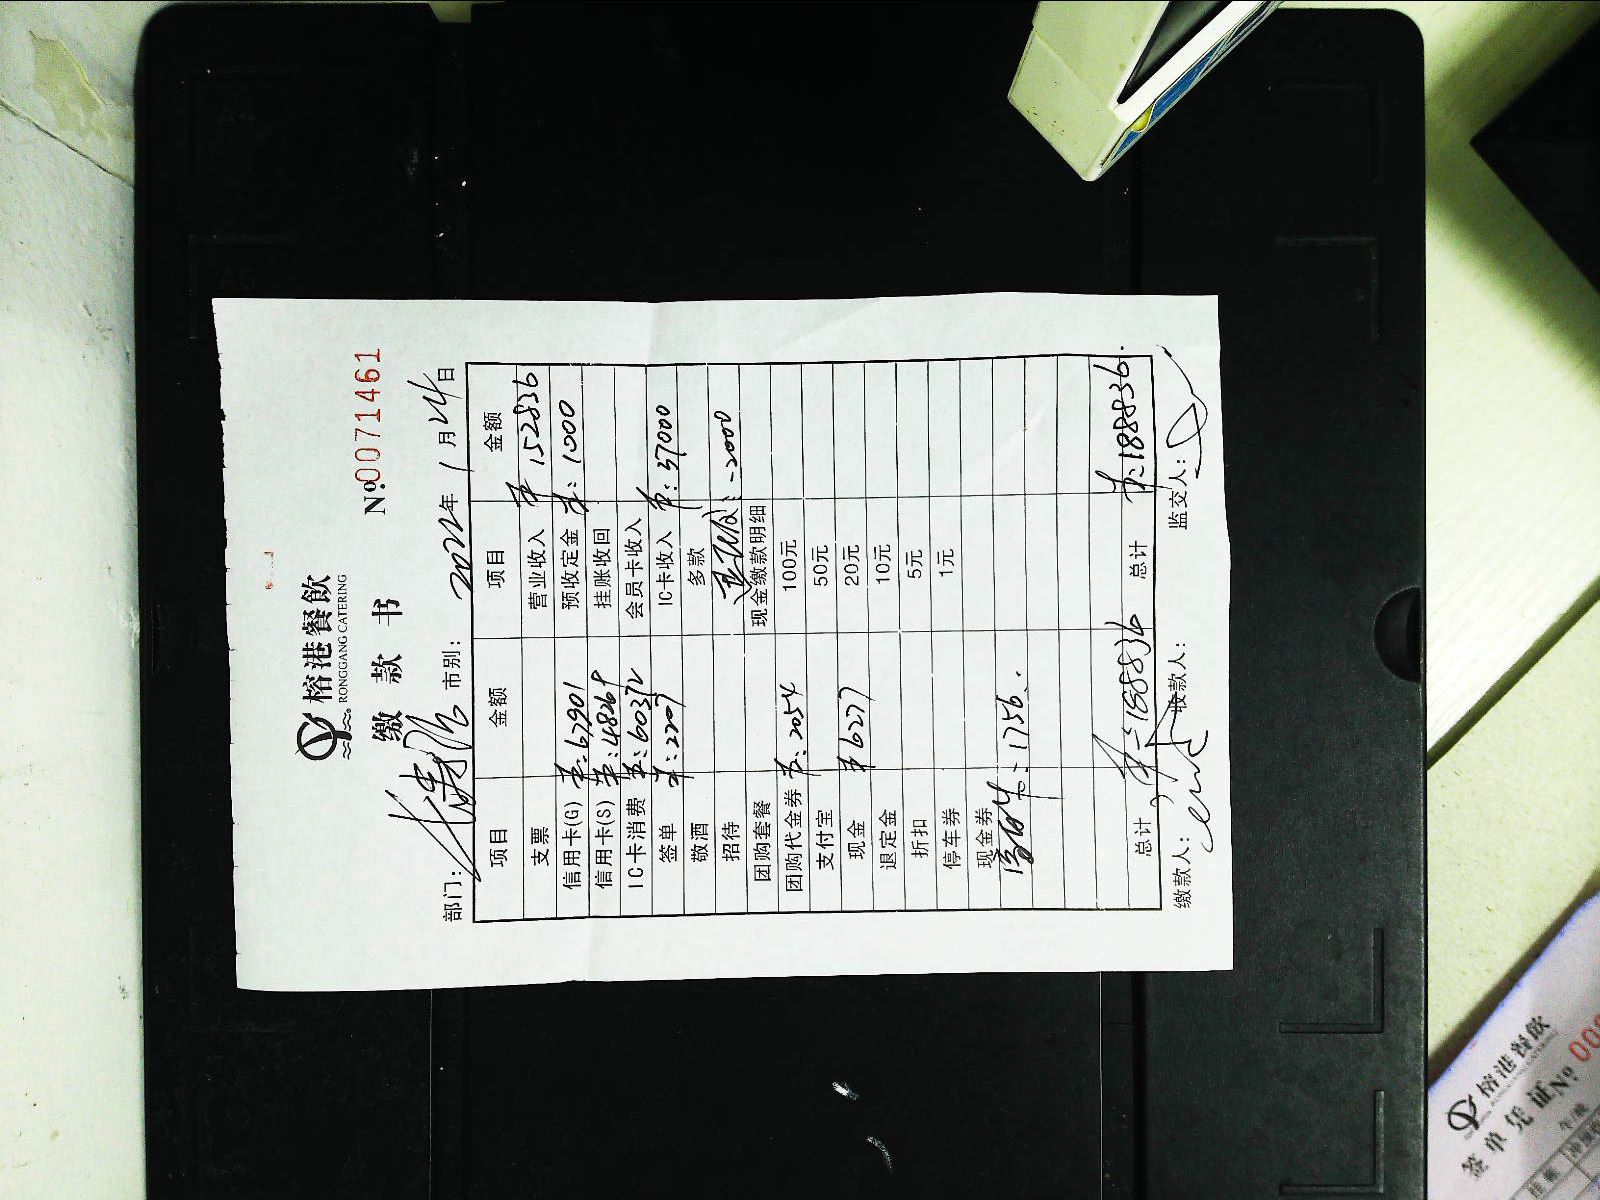 榕港餐飲
RONGGANG CATERING
缴 款 书
№.0071461
部门: 市别: 2022年 1月24日
项目 金额 项目 金额
支票 营业收入 152836
信用卡(G) 67901 预收定金 : 1000
信用卡(S) : 48269 挂账收回
IC卡消费 : 60372 会员卡收入
签单 : 2207 IC卡收入 : 37000
敬酒 多款
招待 : -2000
团购套餐 现金缴款明细
团购代金券 : 2054 100元
支付宝 50元
现金 6277 20元
退定金 10元
折扣 5元
停车券 1元
现金券
: 1756.
总计 : 188836 总计 : 188836.
缴款人: 收款人: 监交人:
榕港餐飲
签单凭证 №